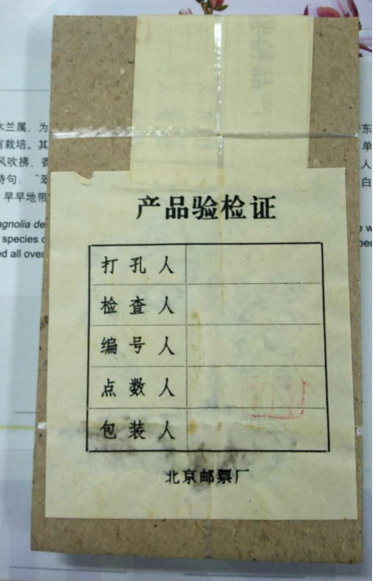 产品验检证
打孔人
检查人
编号人
点数人
包装人
北京邮票厂
木兰属，为
有栽培。其
风吹拂，香
诗句，“翠
早早地带
agnolia de
species o
ed all over
东
单
人
白